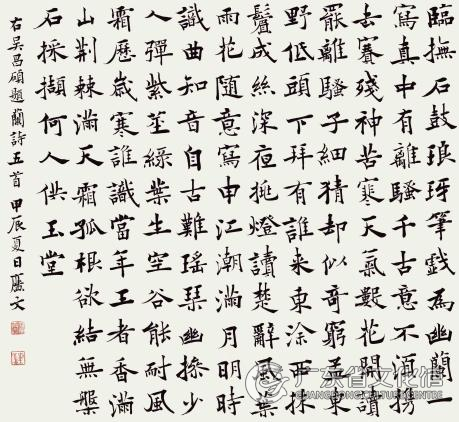 臨撫石鼓琅玡筆戲為幽蘭一
寫真中有離騷千古意不須携
去賽殘神苦寒天氣艱花開讀
罷離騷子細猜却似竒窮孟東
野低頭下拜有誰來東涂西抹
鬢成絲深夜挑燈讀楚辭風葉
雨花隨意寫申江潮滿月明時
識曲知音自古難瑤琹幽操少
人彈紫莖綠葉生空谷能耐風
霜歷歲寒誰識當年王者香滿
山荆棘滿天霜孤根欲結無槃
石採擷何人供玉堂
右吴昌碩題蘭詩五首 甲辰夏日文
广东省文化馆